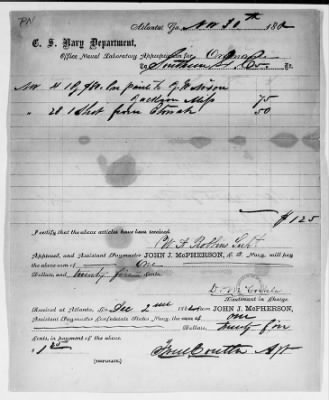 PN
Atlanta, Ga., Nov 30th 186
C. S. Navy Department,
Office Naval Laboratory Appropriation for Ordnance
To Southern Ex. Co. Dr.
Nov 4 1
Jackson Miss 75
" 28 1 Shot from Etowah 50
$1 25
I certify that the above articles have been received.
Robins Supt
Approved, and Assistant Paymaster JOHN J. McPHERSON, C. S. Navy, will pay
the above sum of One
Dollars, and twenty five Cents.
Lieutenant in Charge.
Received at Atlanta, Ga. Dec 2nd 186 , from JOHN J. McPHERSON,
Assistant Paymaster Confederate States Navy, the sum of one
Dollars, twenty five
Cents, in payment of the above.
$ 1 25
Agt
[DUPLICATE.]